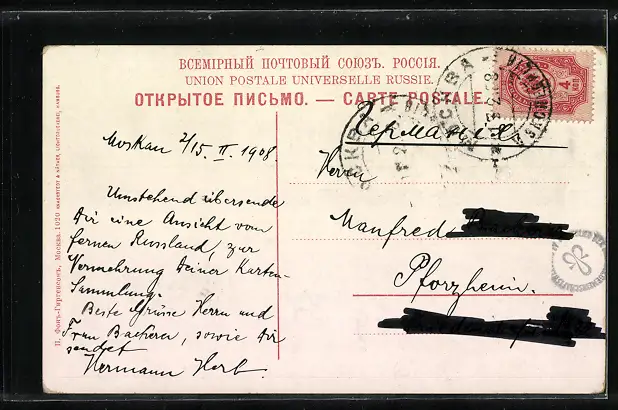 ВСЕМІРНЫЙ ПОЧТОВЫЙ СОЮЗЪ. РОССІЯ.
UNION POSTALE UNIVERSELLE RUSSIE.
ОТКРЫТОЕ ПИСЬМО. — CARTE POSTALE.
Moskau 2/15. II. 1908.
Umstehend übersende
Dir eine Ansicht vom
fernen Russland, zur
Vermehrung Deiner Karten-
Sammlung.
Beste Grüsse Herrn und
Frau, sowie Dir
sendet
Hermann Herb.
Германія
Herrn
Manfred
Pforzheim.
МОСКВА
4